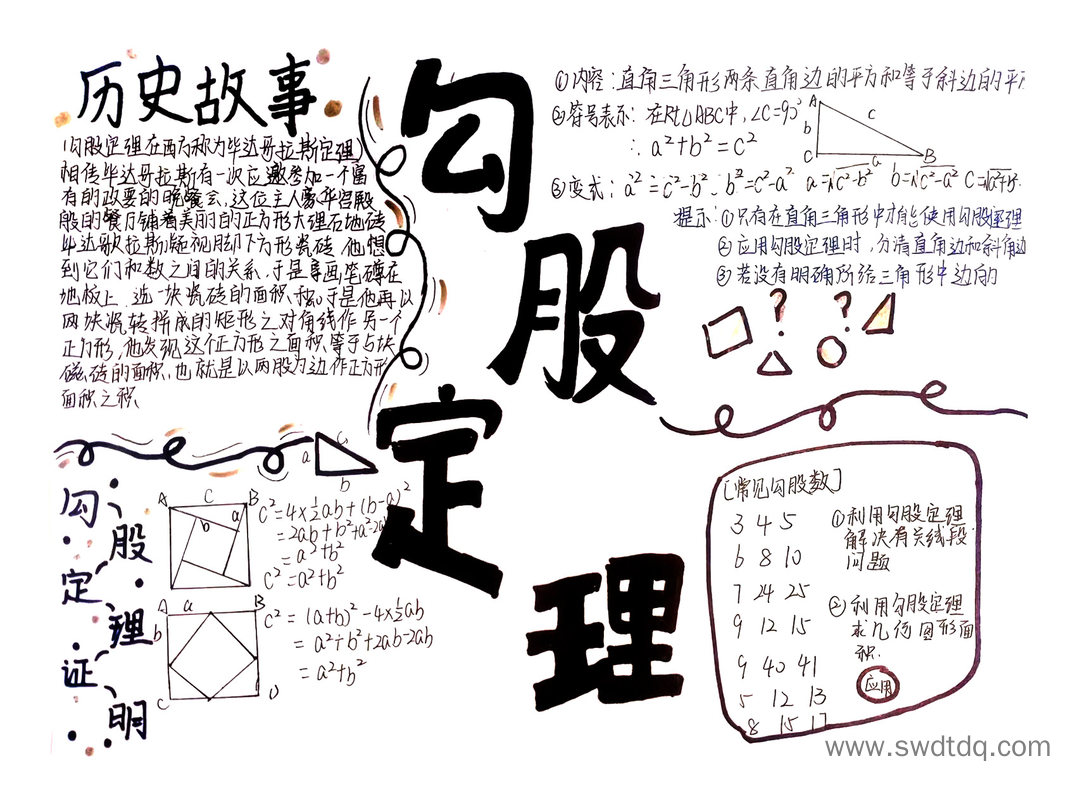 历史故事
(勾股定理在西方称为毕达哥拉斯定理)
相传毕达哥拉斯有一次应邀参加一个富
有的政要的晚餐会,这位主人豪华宫殿
般的餐厅铺着美丽的正方形大理石地砖
毕达哥拉斯凝视脚下方形瓷砖,他想
到它们和数之间的关系,于是拿画笔蹲在
地板上.选一块瓷砖的面积 于是他再以
两块瓷转拼成的矩形之对角线作另一个
正方形,他发现这个正方形之面积等于5块
磁砖的面积,也就是以两股为边作正方形
面积之积.
勾股定理
①内容:直角三角形两条直角边的平方和等于斜边的平
②符号表示:在Rt△ABC中,∠C=90°
∴a²+b²=c²
A
b
c
C
a
B
③变式:a²=c²-b² b²=c²-a² a=√c²-b² b=√c²-a² C=√a²+b²
提示:①只有在直角三角形中才能使用勾股定理
②应用勾股定理时,分清直角边和斜角边
③若没有明确所给三角形中边的
? ?
勾股定理证明
a
c
b
A
c
B
b
a
c²=4×½ab+(b-a)²
=2ab+b²+a²-2ab
=a²+b²
c²=a²+b²
A
a
B
b
C
D
c²=(a+b)²-4×½ab
=a²+b²+2ab-2ab
=a²+b²
[常见勾股数]
3 4 5
6 8 10
7 24 25
9 12 15
9 40 41
5 12 13
8 15 17
①利用勾股定理
解决有关线段
问题
②利用勾股定理
求几何图形面
积.
应用
www.swdtdq.com